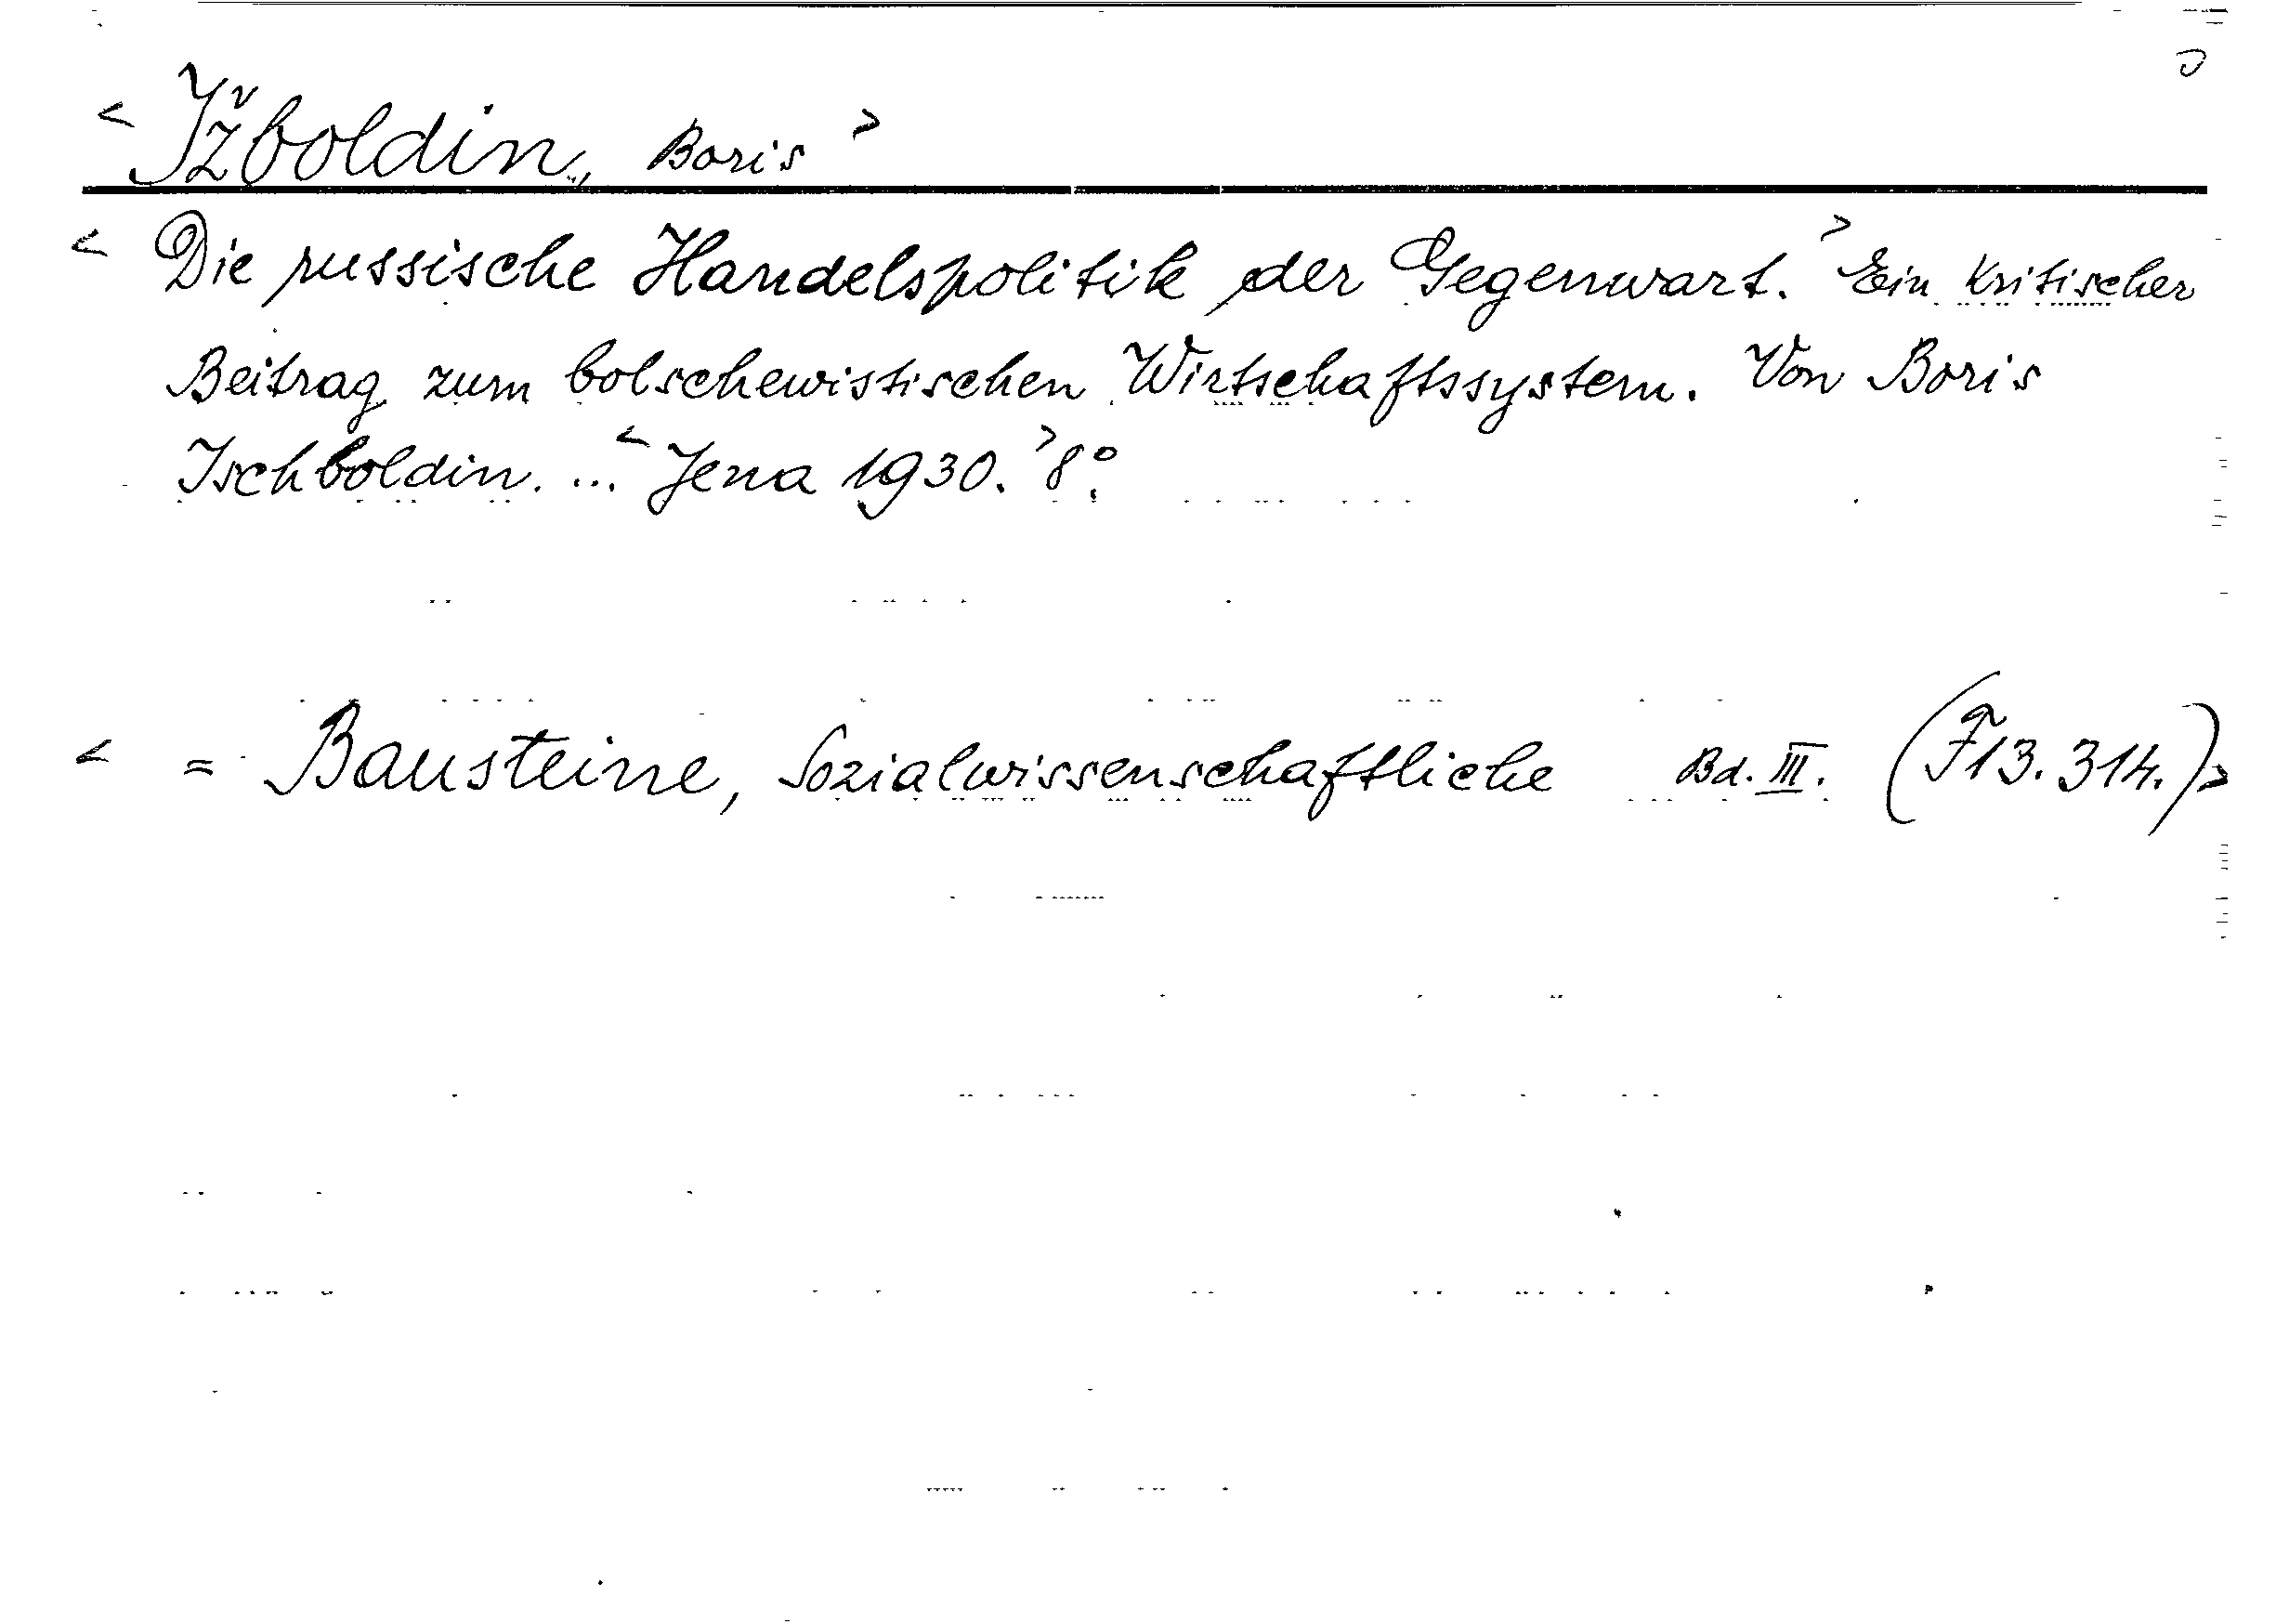 < Ižboldin, Boris >
< Die russische Handelspolitik der Gegenwart. > Ein kritischer
Beitrag zum bolschewistischen Wirtschaftssystem. Von Boris
Ischboldin. ... < Jena 1930. > 8°.
< = Bausteine, Sozialwissenschaftliche Bd. III. (F13.314.) >